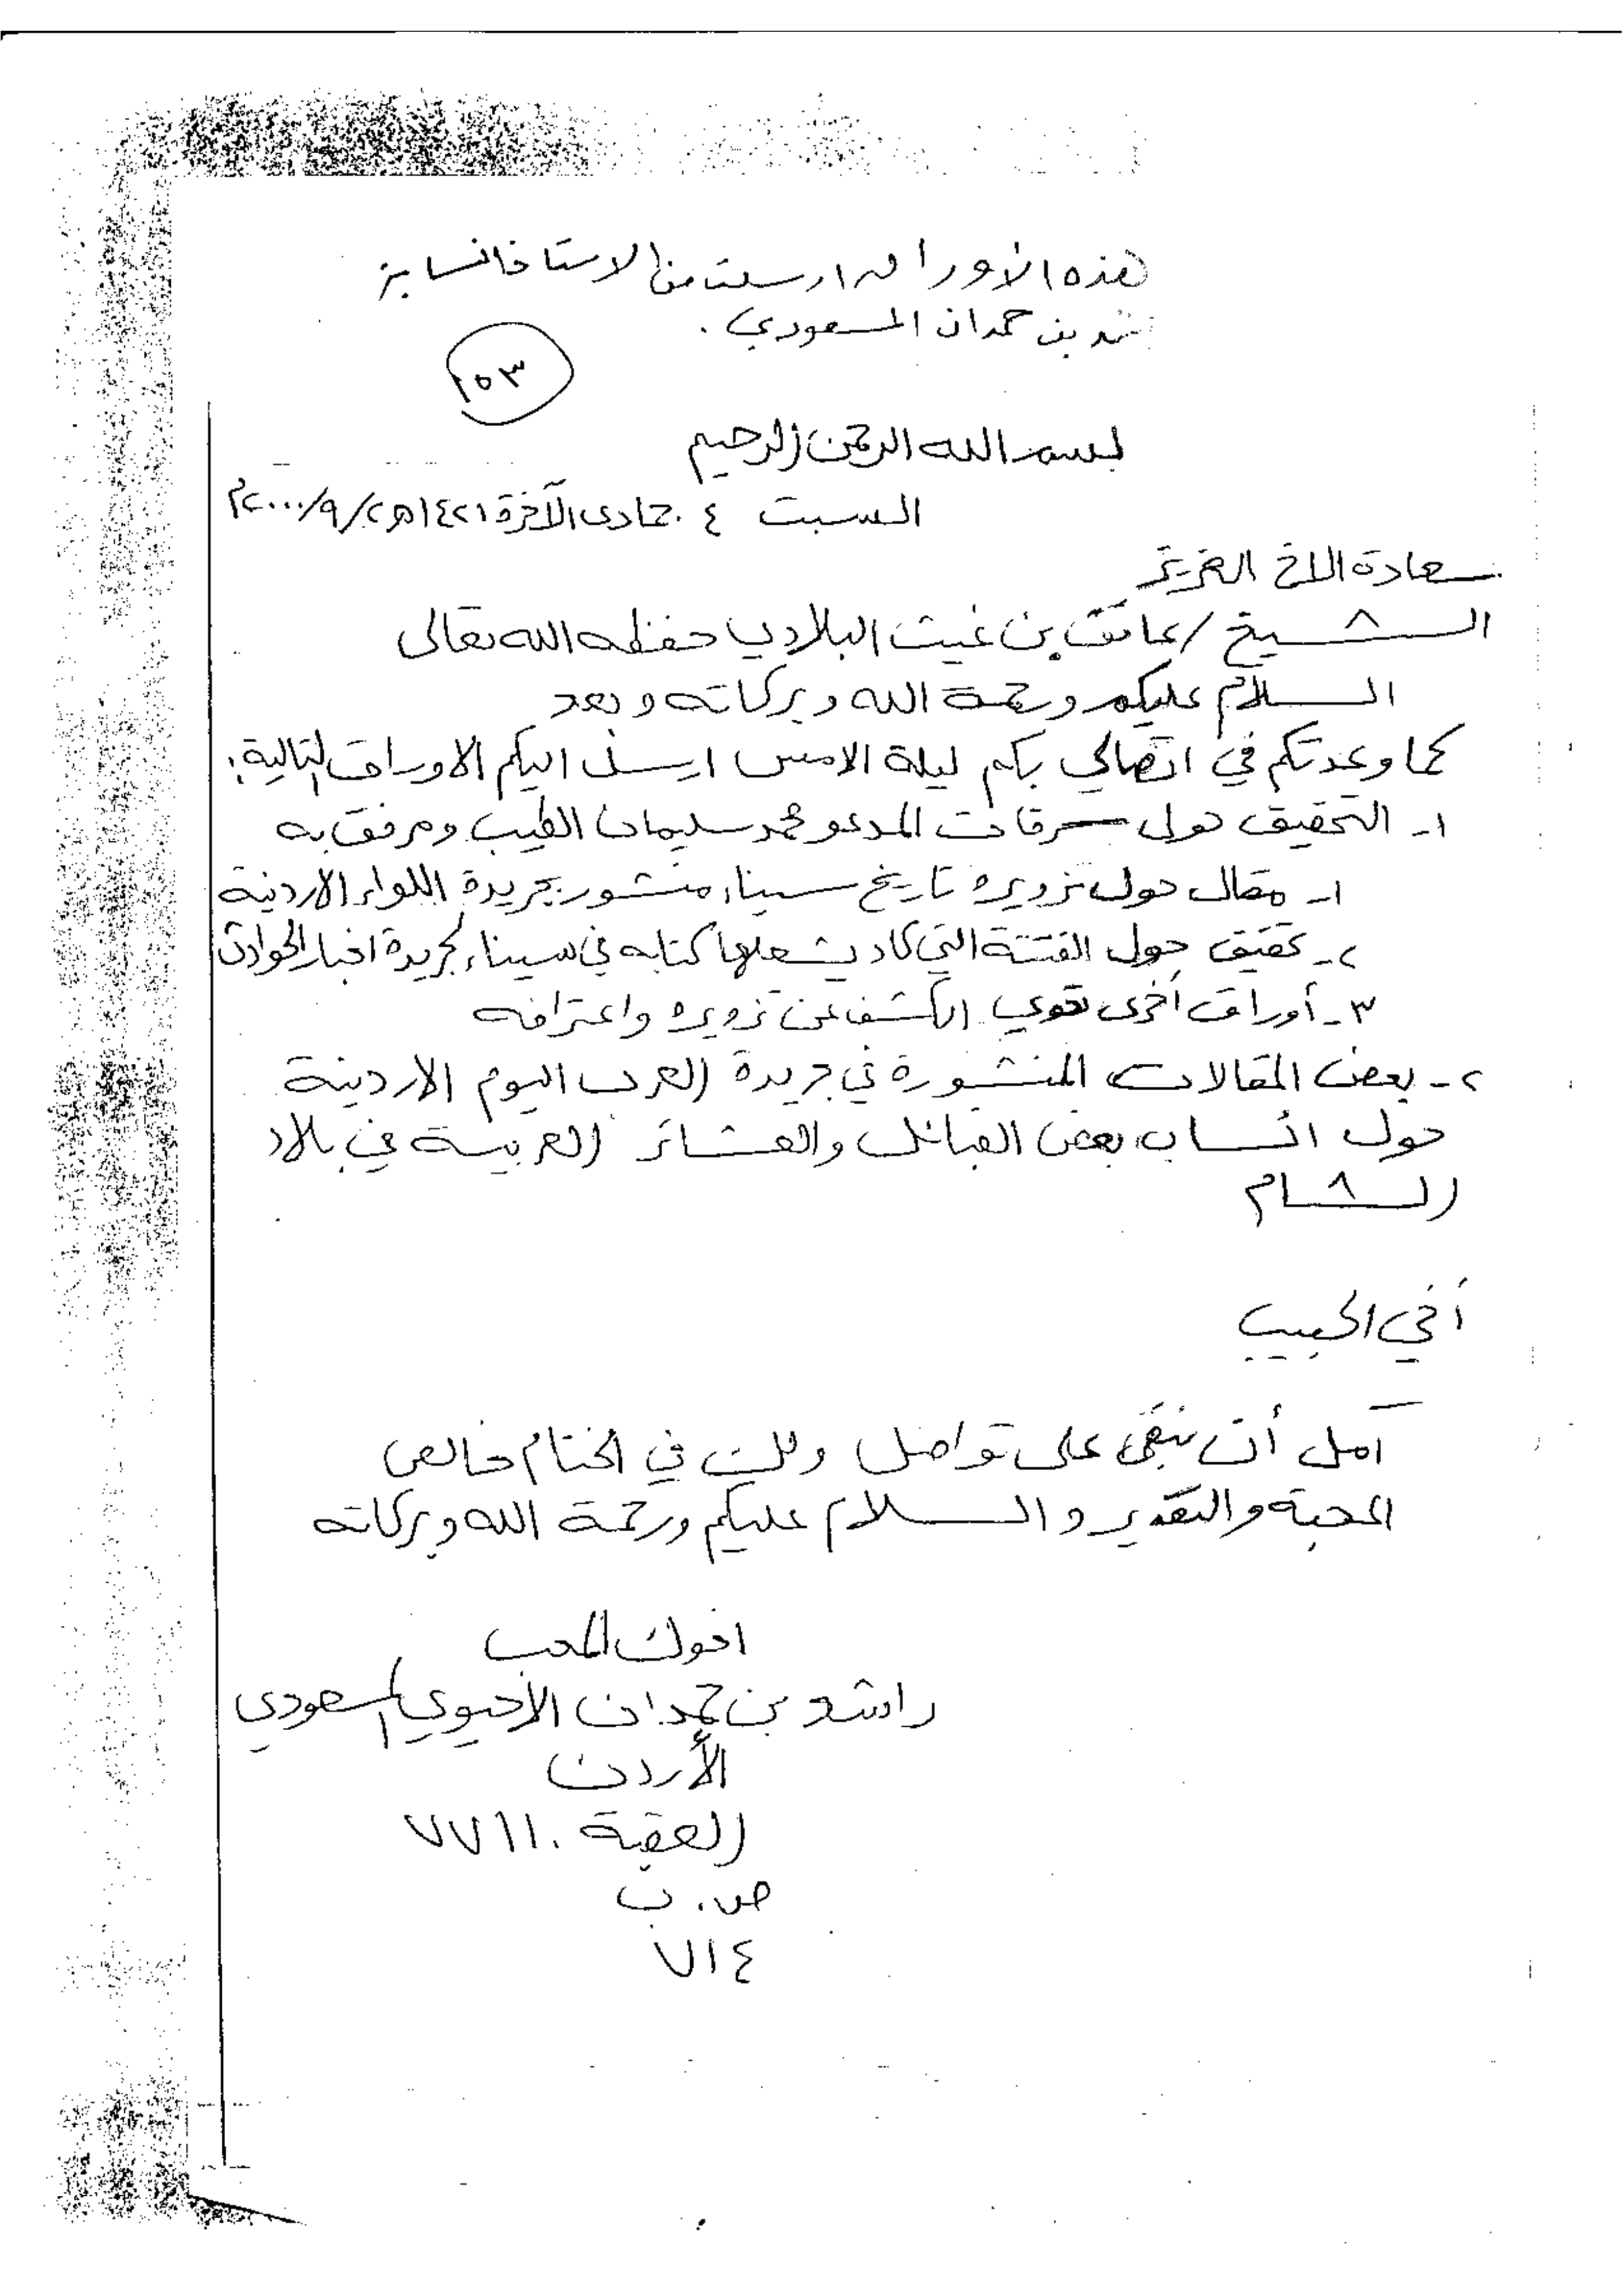 هذه الأوراق ارسلت من الاستاذ النسابة
شد بن حمدان المسعودي .
١٥٣
بسم الله الرحمن الرحيم
السبت ٤ جمادى الآخرة ١٤٢١هـ ٢/٩/٢٠٠٠م
سعادة الاخ العزيز
الشيخ / عاتق بن غيث البلادي حفظه الله تعالى
السلام عليكم ورحمة الله وبركاته وبعد
كما وعدتكم في اتصالي بكم ليلة الامس ارسل اليكم الاوراق التالية:
١- التحقيق حول سرقات المدعو محمد سليمان الطيب ومرفق به
١- مقال حول تزويره تاريخ سيناء منشور بجريدة اللواء الاردنية
٢- تحقيق حول الفتنة التي كاد يشعلها كتابه في سيناء بجريدة اخبار الحوادث
٣- أوراق أخرى تحوي الكشف عن تزويره واعترافه
٢- بعض المقالات المنشورة في جريدة العرب اليوم الاردينة
حول انساب بعض القبائل والعشائر العربية في بلاد
الشام
أخي الحبيب
آمل أن نبقى على تواصل ولك في الختام خالص
المحبة والتقدير والسلام عليكم ورحمة الله وبركاته
اخوك المحب
راشد بن حمدان الاحيوي المسعودي
الأردن
العقبة ٧٧١١٠
ص . ب
٧١٤